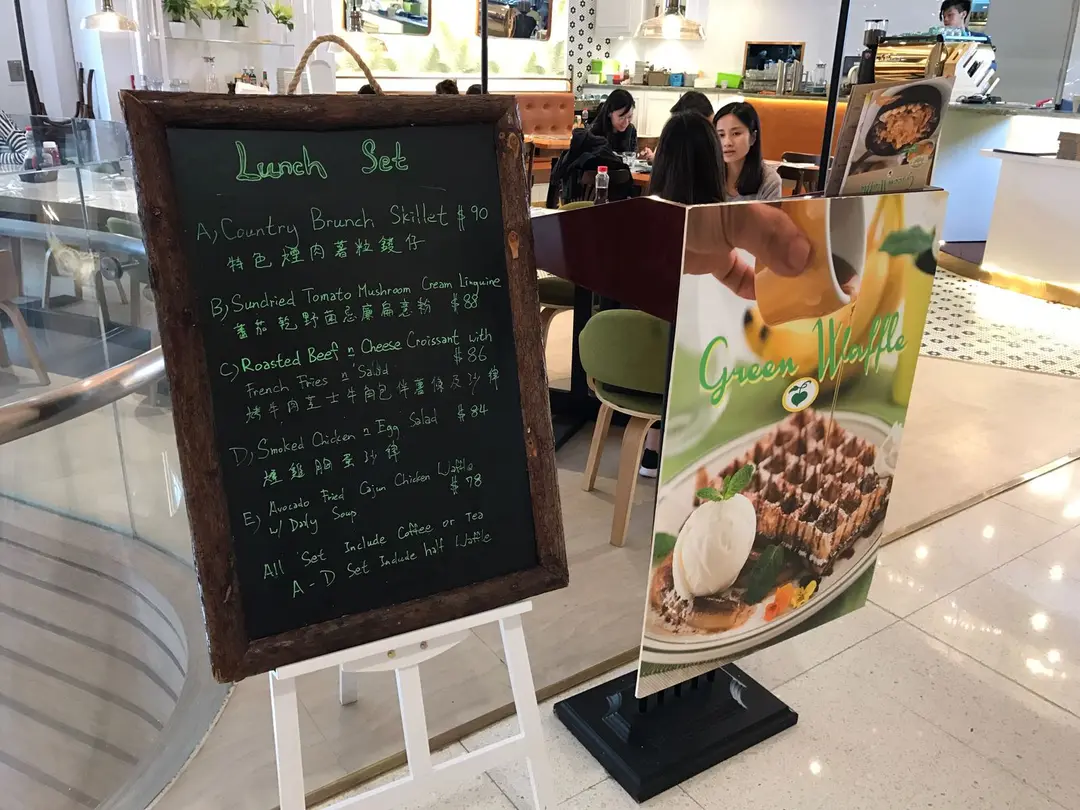 Lunch Set
A, Country Brunch Skillet $90
特色煙肉薯粒鑊仔
B, Sundried Tomato Mushroom Cream Linguine
蕃茄乾野菌忌廉扁意粉 $88
C, Roasted Beef n Cheese Croissant with
French Fries n Salad $86
烤牛肉芝士牛角包伴薯條及沙律
D, Smoked Chicken n Egg Salad $84
煙雞胸蛋沙律
E, Avocado Fried Cajun Chicken Waffle
w/ Daily Soup $78
All Set Include Coffee or Tea
A - D Set Include half Waffle
Green Waffle